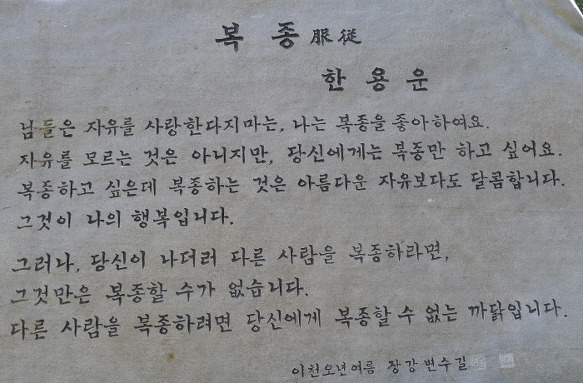 복 종 服從
한 용 운
남들은 자유를 사랑한다지마는, 나는 복종을 좋아하여요.
자유를 모르는 것은 아니지만, 당신에게는 복종만 하고 싶어요.
복종하고 싶은데 복종하는 것은 아름다운 자유보다도 달콤합니다.
그것이 나의 행복입니다.
그러나, 당신이 나더러 다른 사람을 복종하라면,
그것만은 복종할 수가 없습니다.
다른 사람을 복종하려면 당신에게 복종할 수 없는 까닭입니다.
이천오년여름 장강변수길